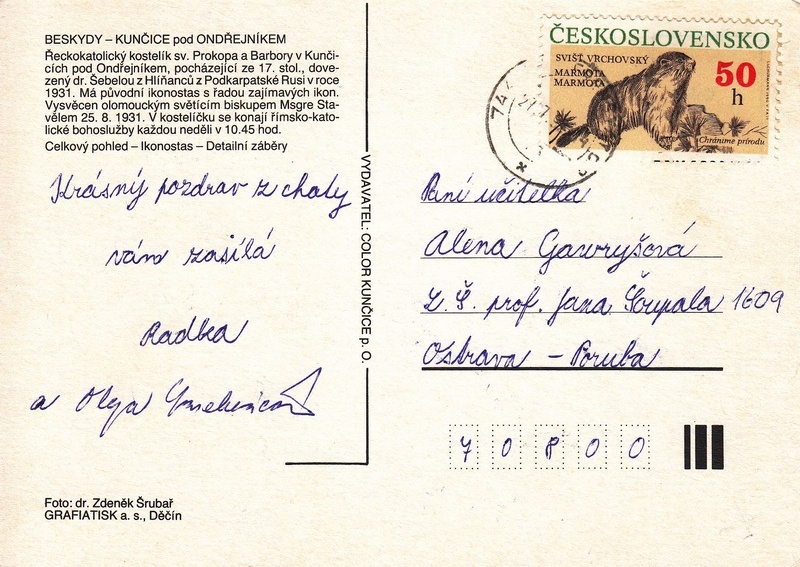 BESKYDY – KUNČICE pod ONDŘEJNÍKEM
Řeckokatolický kostelík sv. Prokopa a Barbory v Kunči-
cích pod Ondřejníkem, pocházející ze 17. stol., dove-
zený dr. Šebelou z Hliňanců z Podkarpatské Rusi v roce
1931. Má původní ikonostas s řadou zajímavých ikon.
Vysvěcen olomouckým světícím biskupem Msgre Sta-
vělem 25. 8. 1931. V kostelíčku se konají římsko-kato-
lické bohoslužby každou neděli v 10.45 hod.
Celkový pohled – Ikonostas – Detailní záběry
Krásný pozdrav z chaty
vám zasílá
Radka
a Olga
Foto: dr. Zdeněk Šrubař
GRAFIATISK a. s., Děčín
VYDAVATEL: COLOR KUNČICE p. O.
ČESKOSLOVENSKO
SVIŠŤ VRCHOVSKÝ
MARMOTA
MARMOTA
50
h
Chráníme přírodu
744
Paní učitelka
Alena Gawryšová
Z. Š. prof. Jana Šoupala 1609
Ostrava – Poruba
70800